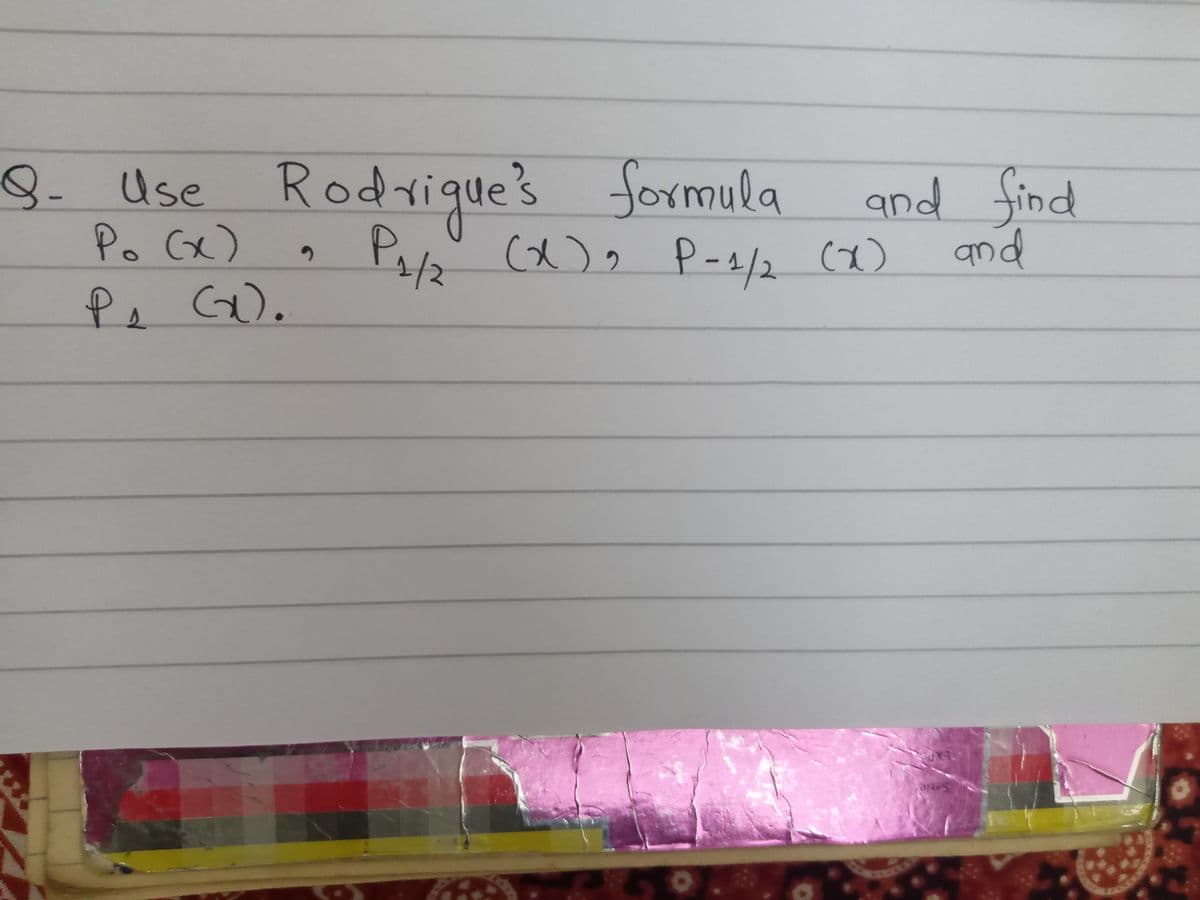 Q- Use Rodrigue's formula and find
P₀ (x) , P₁/₂ (x), P-1/2 (x) and
P₁ (x).